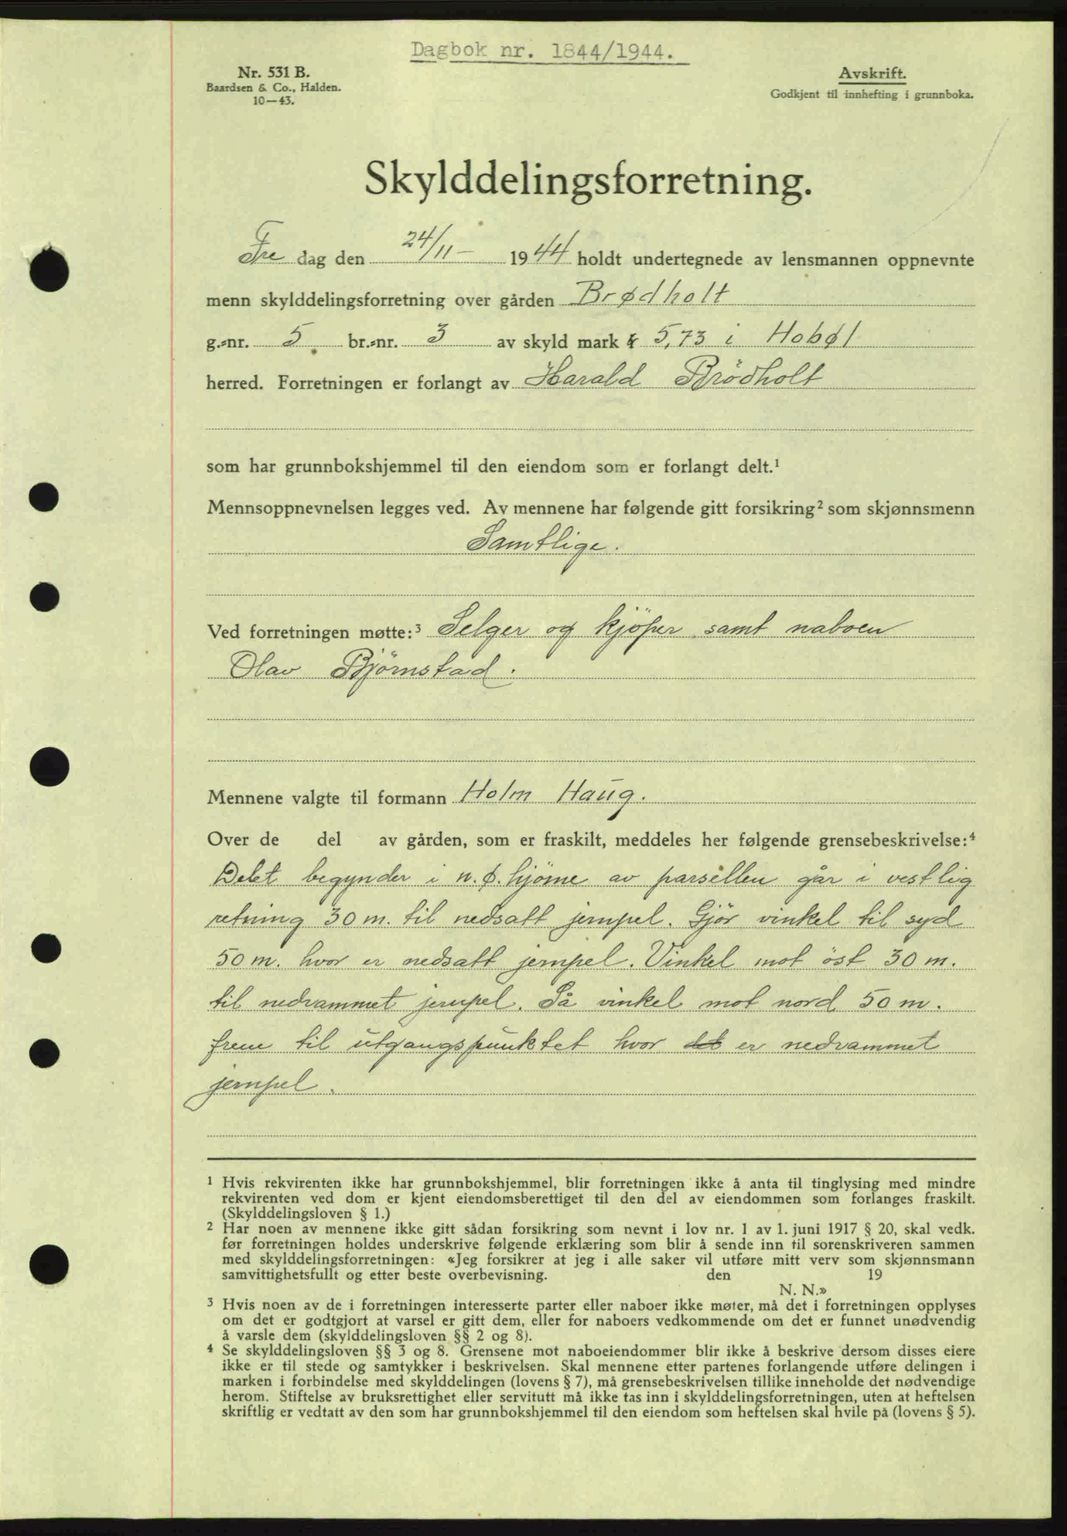 Dagbok nr. 1844/1944.
Nr. 531 B.
Baardsen & Co., Halden.
10—43.
Avskrift.
Godkjent til innhefting i grunnboka.
Skylddelingsforretning.
Fre dag den 24/11– 1944 holdt undertegnede av lensmannen oppnevnte
menn skylddelingsforretning over gården Brødholt
g.-nr. 5 br.-nr. 3 av skyld mark 5,73 i Hobøl
herred. Forretningen er forlangt av Harald Brödholt
som har grunnbokshjemmel til den eiendom som er forlangt delt.¹
Mennsoppnevnelsen legges ved. Av mennene har følgende gitt forsikring² som skjønnsmenn
Samtlige.
Ved forretningen møtte:³ Selger og kjöper samt naboen
Olav Björnstad.
Mennene valgte til formann Holm Haug.
Over de del av gården, som er fraskilt, meddeles her følgende grensebeskrivelse:⁴
Delet begynder i n.ø. hjörne av parsellen går i vestlig
retning 30 m. til nedsatt jernpel. Gjör vinkel til syd
50 m. hvor er nedsatt jernpel. Vinkel mot öst 30 m.
til nedrammet jernpel. Så vinkel mot nord 50 m.
frem til utgangspunktet hvor det er nedrammet
jernpel.
¹ Hvis rekvirenten ikke har grunnbokshjemmel, blir forretningen ikke å anta til tinglysing med mindre
rekvirenten ved dom er kjent eiendomsberettiget til den del av eiendommen som forlanges fraskilt.
(Skylddelingsloven § 1.)
² Har noen av mennene ikke gitt sådan forsikring som nevnt i lov nr. 1 av 1. juni 1917 § 20, skal vedk.
før forretningen holdes underskrive følgende erklæring som blir å sende inn til sorenskriveren sammen
med skylddelingsforretningen: «Jeg forsikrer at jeg i alle saker vil utføre mitt verv som skjønnsmann
samvittighetsfullt og etter beste overbevisning. den 19
N. N.»
³ Hvis noen av de i forretningen interesserte parter eller naboer ikke møter, må det i forretningen opplyses
om det er godtgjort at varsel er gitt dem, eller for naboers vedkommende om det er funnet unødvendig
å varsle dem (skylddelingsloven §§ 2 og 8).
⁴ Se skylddelingsloven §§ 3 og 8. Grensene mot naboeiendommer blir ikke å beskrive dersom disses eiere
ikke er til stede og samtykker i beskrivelsen. Skal mennene etter partenes forlangende utføre delingen i
marken i forbindelse med skylddelingen (lovens § 7), må grensebeskrivelsen tillike inneholde det nødvendige
herom. Stiftelse av bruksrettighet eller servitutt må ikke tas inn i skylddelingsforretningen, uten at heftelsen
skriftlig er vedtatt av den som har grunnbokshjemmel til den eiendom som heftelsen skal hvile på (lovens § 5).